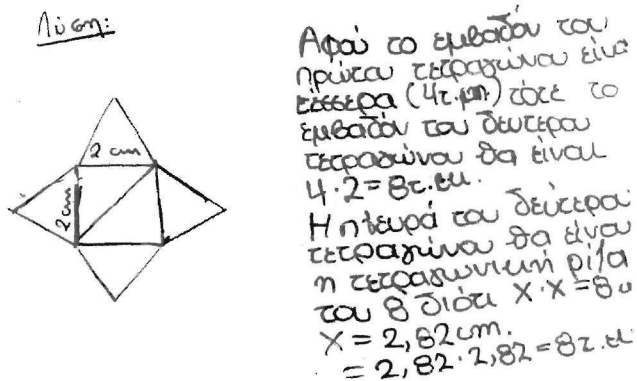 Λύση:
2 cm
2cm
Αφού το εμβαδόν του
πρώτου τετραγώνου είναι
τέσσερα (4τ.μπ.) τότε το
εμβαδόν του δευτερου
τετραγώνου θα είναι
4·2=8τ.εκ.
Η πλευρά του δεύτερου
τετραγώνου θα είναι
η τετραγωνική ρίζα
του 8 διότι Χ·Χ=8
Χ = 2,82cm.
= 2,82·2,82=8τ.εκ